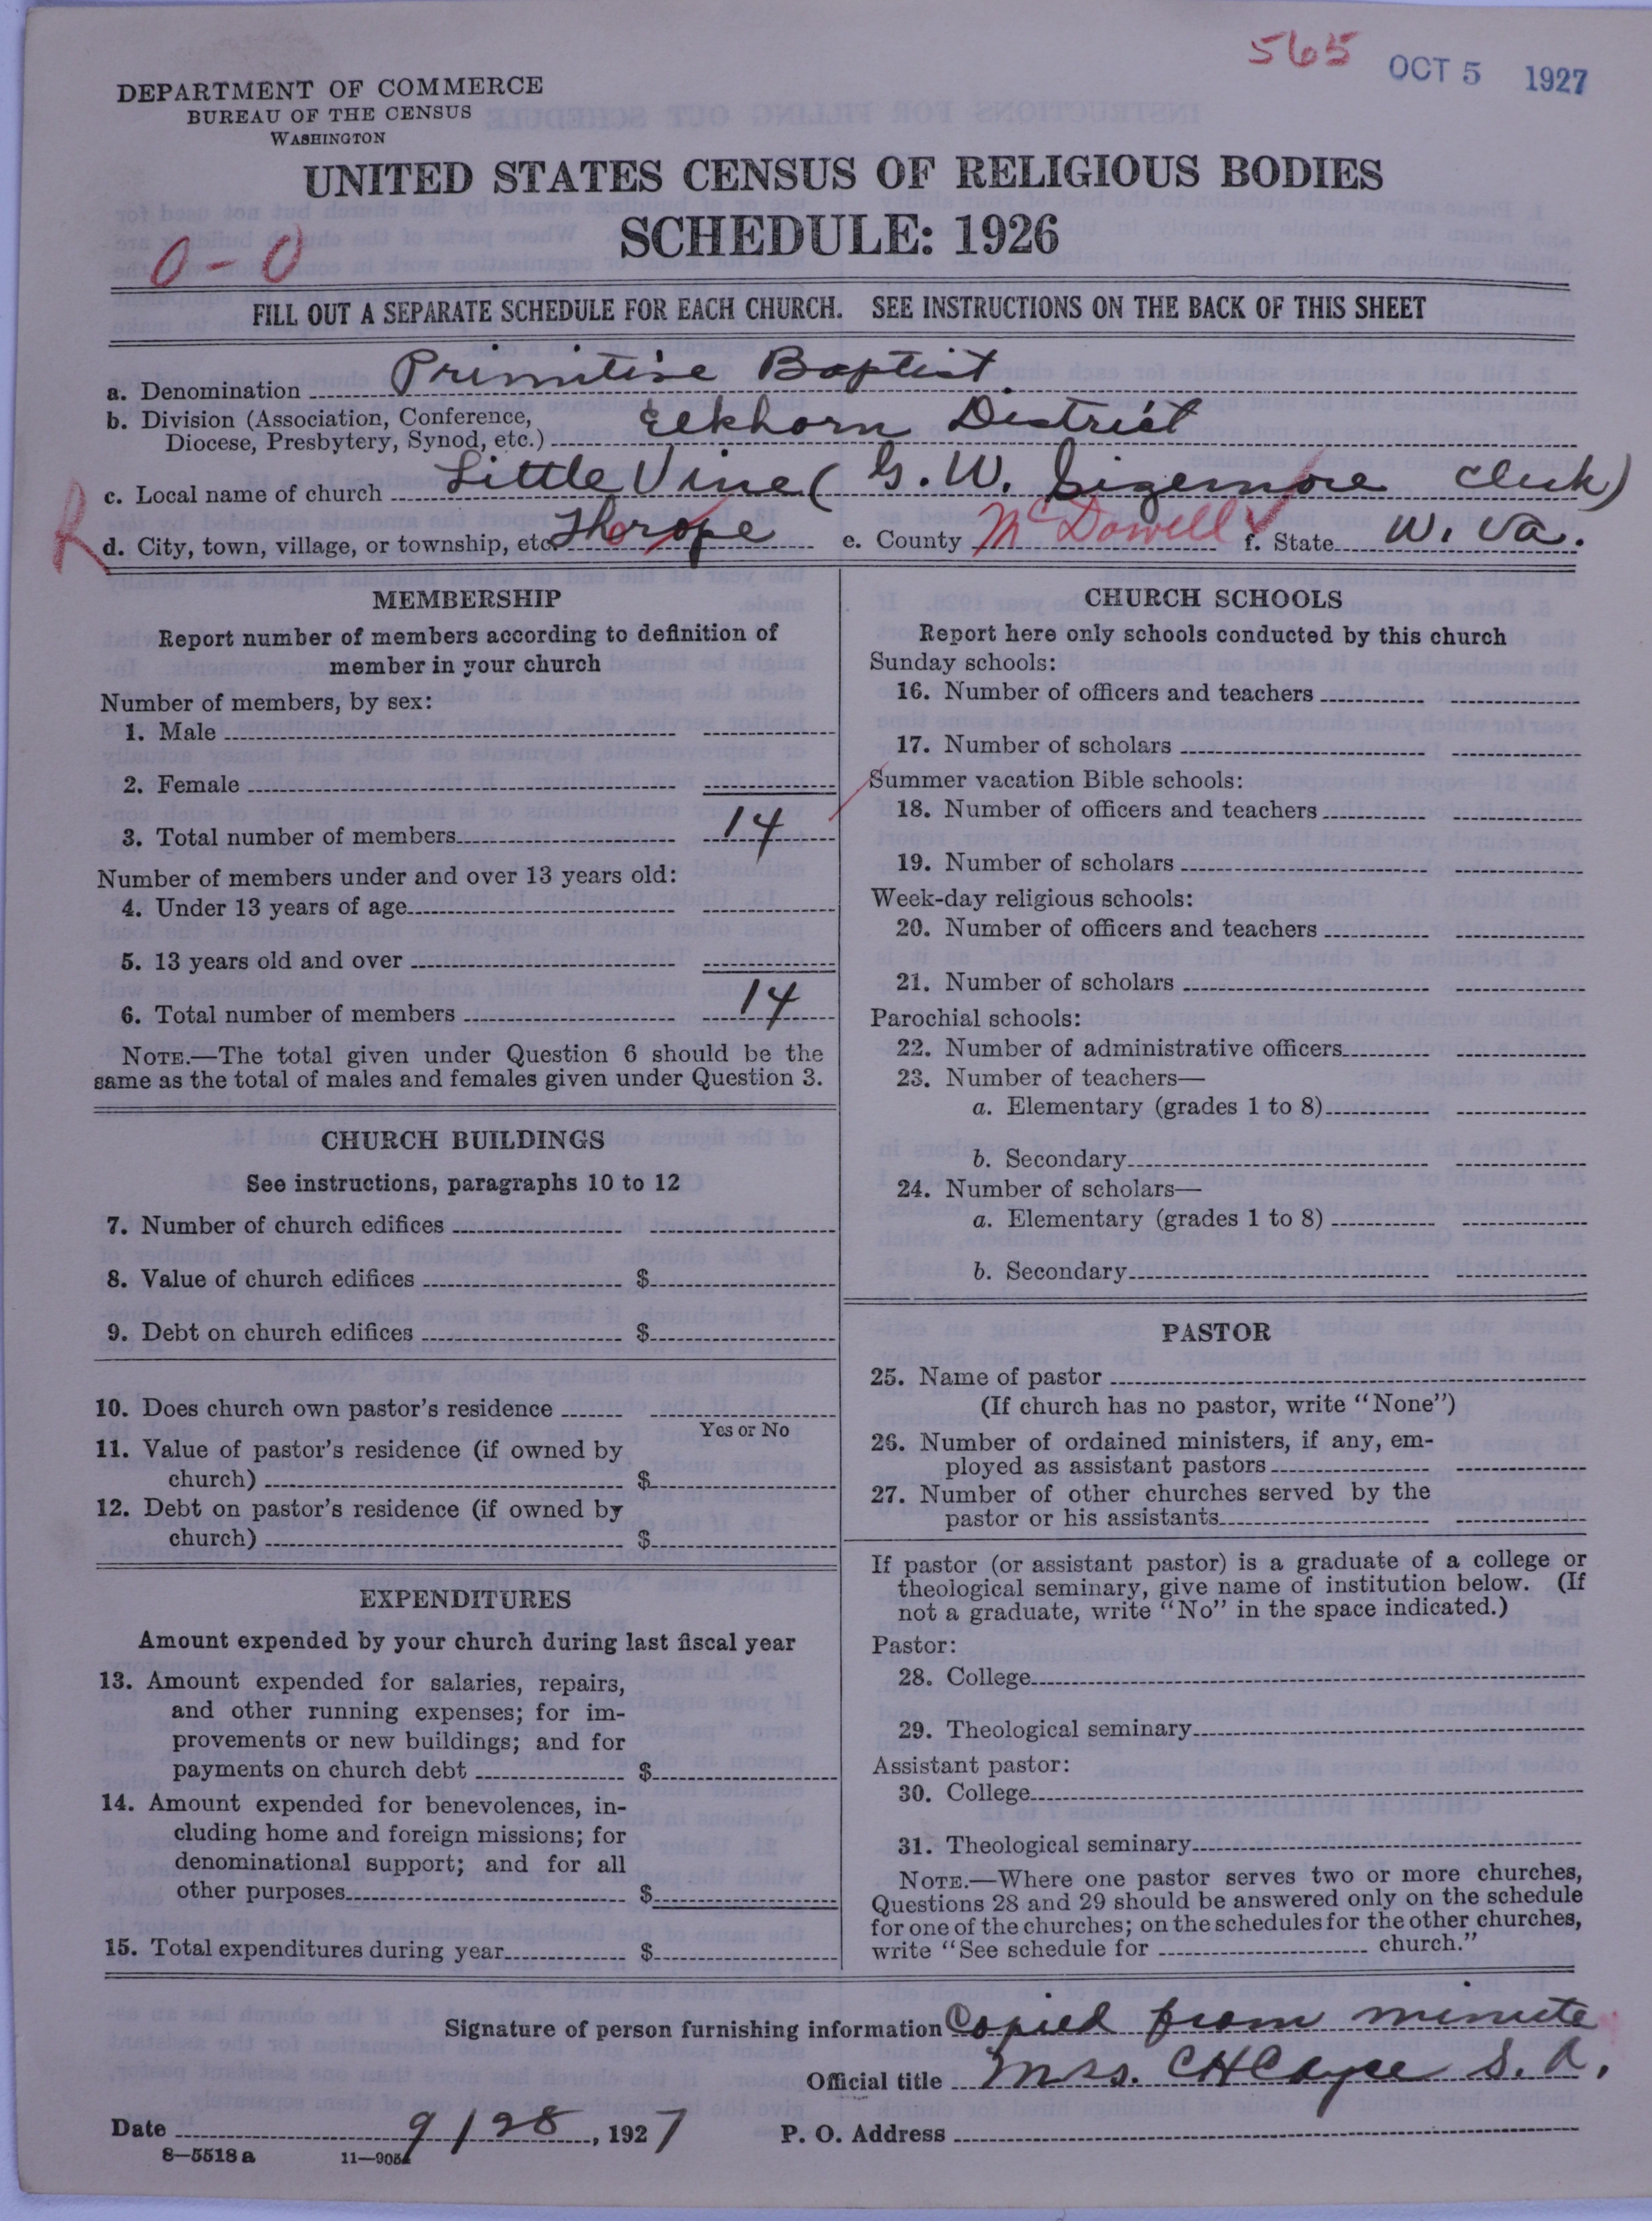 565 OCT 5 1927
DEPARTMENT OF COMMERCE
BUREAU OF THE CENSUS
WASHINGTON
UNITED STATES CENSUS OF RELIGIOUS BODIES
SCHEDULE: 1926
0-0
FILL OUT A SEPARATE SCHEDULE FOR EACH CHURCH. SEE INSTRUCTIONS ON THE BACK OF THIS SHEET
a. Denomination Primitive Baptist
b. Division (Association, Conference,
Diocese, Presbytery, Synod, etc.) Elkhorn District
c. Local name of church Little Vine (G. W. Sizemore Clerk)
R
d. City, town, village, or township, etc. Thorope e. County McDowell f. State W. Va.
MEMBERSHIP
Report number of members according to definition of
member in your church
Number of members, by sex:
1. Male
2. Female
3. Total number of members 14
Number of members under and over 13 years old:
4. Under 13 years of age
5. 13 years old and over
6. Total number of members 14
NOTE.—The total given under Question 6 should be the
same as the total of males and females given under Question 3.
CHURCH BUILDINGS
See instructions, paragraphs 10 to 12
7. Number of church edifices
8. Value of church edifices $
9. Debt on church edifices $
10. Does church own pastor's residence
Yes or No
11. Value of pastor's residence (if owned by
church) $
12. Debt on pastor's residence (if owned by
church) $
EXPENDITURES
Amount expended by your church during last fiscal year
13. Amount expended for salaries, repairs,
and other running expenses; for im-
provements or new buildings; and for
payments on church debt $
14. Amount expended for benevolences, in-
cluding home and foreign missions; for
denominational support; and for all
other purposes $
15. Total expenditures during year $
CHURCH SCHOOLS
Report here only schools conducted by this church
Sunday schools:
16. Number of officers and teachers
17. Number of scholars
Summer vacation Bible schools:
18. Number of officers and teachers
19. Number of scholars
Week-day religious schools:
20. Number of officers and teachers
21. Number of scholars
Parochial schools:
22. Number of administrative officers
23. Number of teachers—
a. Elementary (grades 1 to 8)
b. Secondary
24. Number of scholars—
a. Elementary (grades 1 to 8)
b. Secondary
PASTOR
25. Name of pastor
(If church has no pastor, write "None")
26. Number of ordained ministers, if any, em-
ployed as assistant pastors
27. Number of other churches served by the
pastor or his assistants
If pastor (or assistant pastor) is a graduate of a college or
theological seminary, give name of institution below. (If
not a graduate, write "No" in the space indicated.)
Pastor:
28. College
29. Theological seminary
Assistant pastor:
30. College
31. Theological seminary
NOTE.—Where one pastor serves two or more churches,
Questions 28 and 29 should be answered only on the schedule
for one of the churches; on the schedules for the other churches,
write "See schedule for church."
Signature of person furnishing information Copied from minute
Official title Mrs. C H Cayce S. A.
Date 9/28, 1927 P. O. Address
8—5518 a 11—905